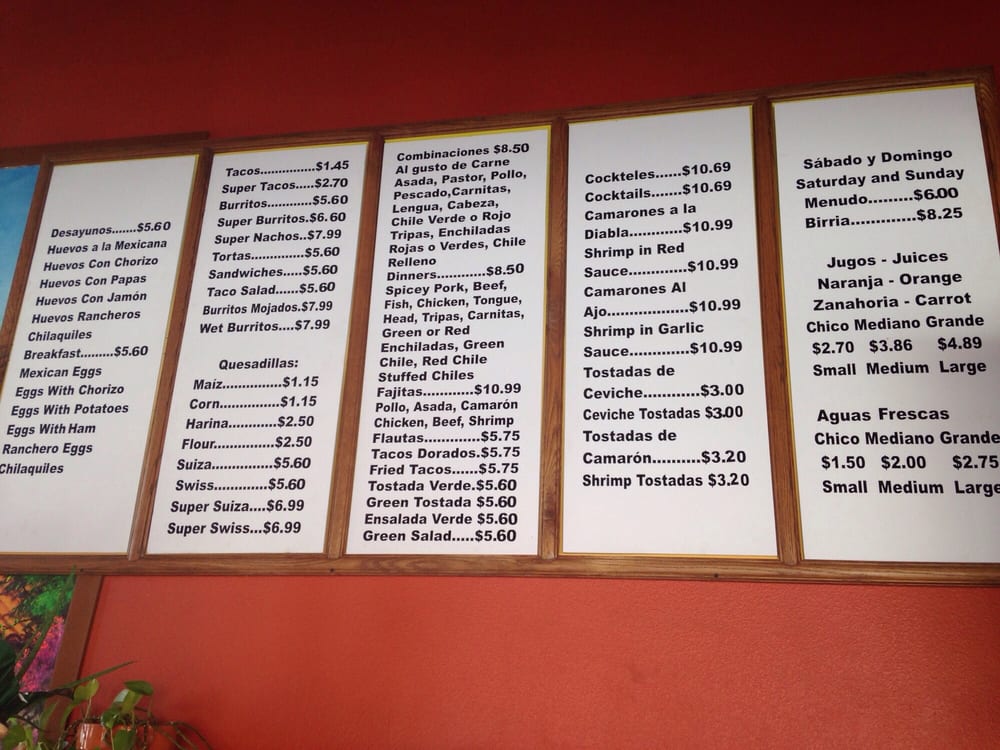 Desayunos.......$5.60
Huevos a la Mexicana
Huevos Con Chorizo
Huevos Con Papas
Huevos Con Jamón
Huevos Rancheros
Chilaquiles
Breakfast.........$5.60
Mexican Eggs
Eggs With Chorizo
Eggs With Potatoes
Eggs With Ham
Ranchero Eggs
Chilaquiles
Tacos...............$1.45
Super Tacos.....$2.70
Burritos............$5.60
Super Burritos.$6.60
Super Nachos..$7.99
Tortas..............$5.60
Sandwiches.....$5.60
Taco Salad......$5.60
Burritos Mojados.$7.99
Wet Burritos....$7.99
Quesadillas:
Maíz...............$1.15
Corn...............$1.15
Harina............$2.50
Flour...............$2.50
Suiza...............$5.60
Swiss..............$5.60
Super Suiza....$6.99
Super Swiss...$6.99
Combinaciones $8.50
Al gusto de Carne
Asada, Pastor, Pollo,
Pescado,Carnitas,
Lengua, Cabeza,
Chile Verde o Rojo
Tripas, Enchiladas
Rojas o Verdes, Chile
Relleno
Dinners............$8.50
Spicey Pork, Beef,
Fish, Chicken, Tongue,
Head, Tripas, Carnitas,
Green or Red
Enchiladas, Green
Chile, Red Chile
Stuffed Chiles
Fajitas...............$10.99
Pollo, Asada, Camarón
Chicken, Beef, Shrimp
Flautas.............$5.75
Tacos Dorados.$5.75
Fried Tacos......$5.75
Tostada Verde.$5.60
Green Tostada $5.60
Ensalada Verde $5.60
Green Salad.....$5.60
Cockteles......$10.69
Cocktails.......$10.69
Camarones a la
Diabla............$10.99
Shrimp in Red
Sauce.............$10.99
Camarones Al
Ajo..................$10.99
Shrimp in Garlic
Sauce.............$10.99
Tostadas de
Ceviche............$3.00
Ceviche Tostadas $3.00
Tostadas de
Camarón..........$3.20
Shrimp Tostadas $3.20
Sábado y Domingo
Saturday and Sunday
Menudo.........$6.00
Birria.............$8.25
Jugos - Juices
Naranja - Orange
Zanahoria - Carrot
Chico Mediano Grande
$2.70 $3.86 $4.89
Small Medium Large
Aguas Frescas
Chico Mediano Grande
$1.50 $2.00 $2.75
Small Medium Large